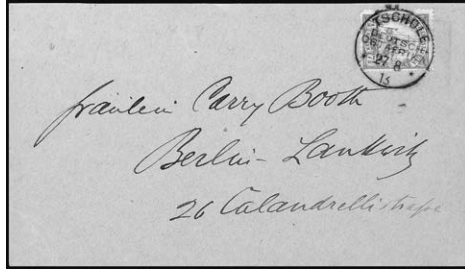 27 8
13
Fräulein Carry Booth
Berlin-Lankwitz
26 Calandrellistraße